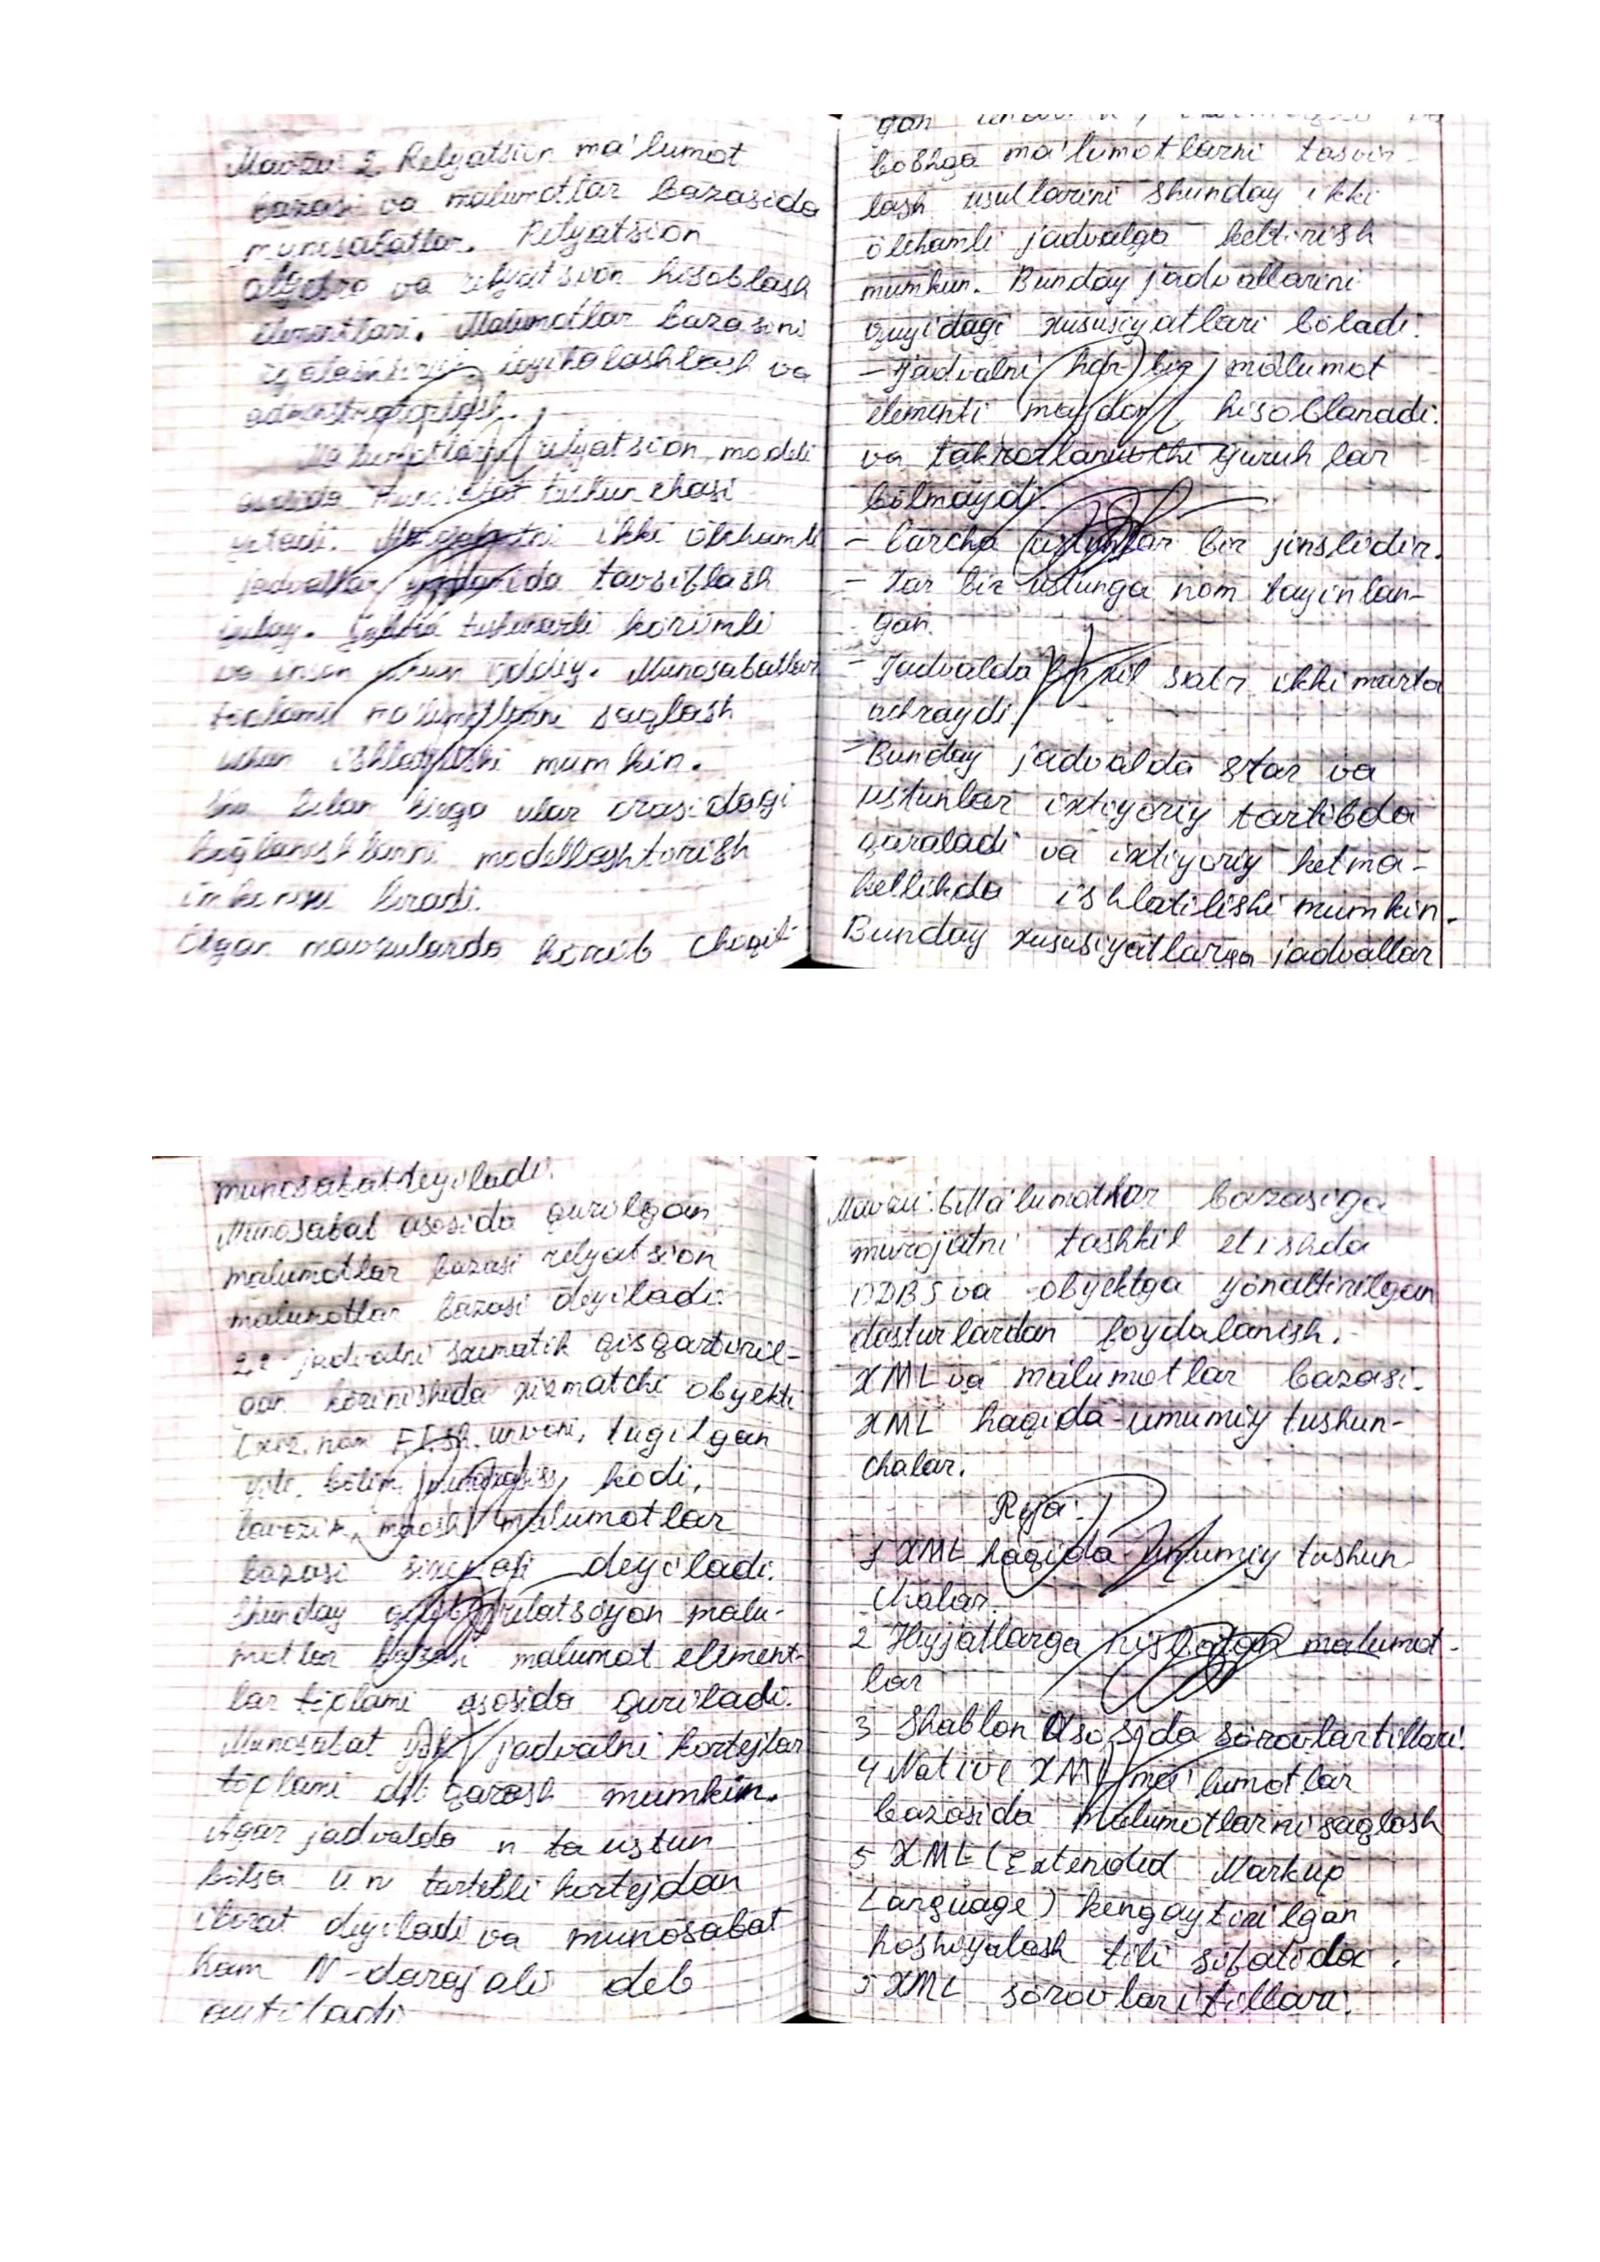 Mavzu 2 Relyatsion ma'lumot
bazasi va malumotlar bazasida
munosabatlar. Relyatsion
algebra va relyatsion hisoblash
elementlari. Malumotlar bazasini
loyihalashtirish va
relyatsion modeli
asosida tushunchasi
yetadi. ikki ölchamli
jadvallar yordamida tavsiflash
qulay. tushunarli körimli
va inson uchun oddiy. Munosabatlar
töplami ma'lumotlarni saqlash
uchun ishlatilishi mumkin.
Shu bilan birga ular orasidagi
boglanishlarni modellashtirish
imkonini beradi.
Ötgan mavzularda körib chiqil-
gan
boshqa ma'lumotlarni tasvir-
lash usullarini shunday ikki
ölchamli jadvalga keltirish
mumkin. Bunday jadvallarini
quyidagi xususiyatlari böladi:
- Jadvalni har bir ma'lumot
elementi maydon hisoblanadi.
va takrorlanuvchi guruhlar
bölmaydi.
- barcha ustunlar bir jinslidir.
- Har bir ustunga nom tayinlan-
gan.
- Jadvalda bir xil satr ikki marta
uchraydi
- Bunday jadvalda star va
ustunlar ixtiyoriy tartibda
qaraladi va ixtiyoriy ketma-
ketlikda ishlatilishi mumkin.
Bunday xususiyatlarga jadvallar
munosabat deyiladi.
Munosabat asosida qurilgan
malumotlar bazasi relyatsion
malumotlar bazasi deyiladi.
2,2 jadvalni sxematik qisqartiril-
gan körinishida xizmatchi obyekti
(xiz. nom F.I.Sh. unvoni, tugilgan
yili, bölim, kodi,
lavozim, maosh) malumotlar
bazasi deyiladi.
Shunday qilib relatsiyon malu-
motlar bazasi malumot element-
lar töplami asosida quriladi.
Munosabat yoki jadvalni kortejlar
töplami deb qarash mumkin.
Agar jadvalda n ta ustun
bölsa u n tartibli kortejdan
iborat deyiladi va munosabat
ham N-darajali deb
aytiladi
Mavzu: 6.Ma'lumotlar bazasiga
murojatni tashkil etishda
ODBS va obyektga yönaltirilgan
dasturlardan foydalanish.
XML va malumotlar bazasi.
XML haqida umumiy tushun-
chalar.
Reja:
1 XML haqida umumiy tushun
chalar.
2 Hujjatlarga nisbatan malumot-
lar
3 Shablon asosida sörovlar tillari.
4 Native XML ma'lumotlar
bazasida malumotlarni saqlash
5 XML (Extended Markup
Language) kengaytirilgan
hoshiyalash tili sifatida.
5 XML sörovlari tillari.